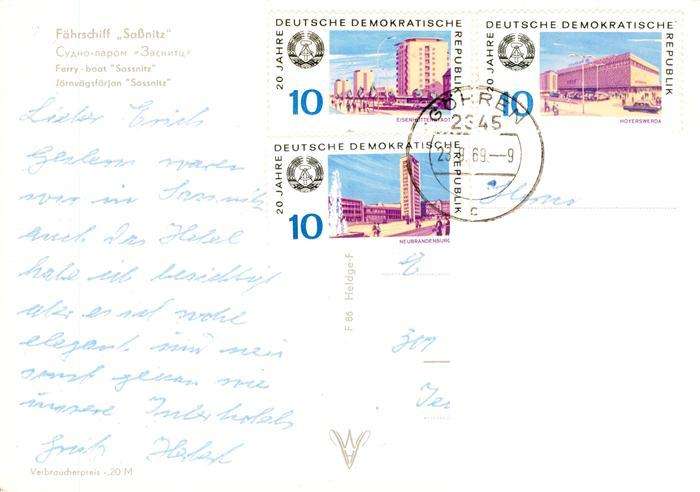 Fährschiff „Saßnitz"
Судно-паром «Засниц»
Ferry-boat "Sassnitz"
Järnvägsfärjan "Sassnitz"
Lieber Erich
Gestern waren
wir in Sassnitz
auch das Hotel
habe ich besichtigt
aber es ist wohl
elegant und
sonst genau wie
unsere Interhotels
Verbraucherpreis -.20 M
20 JAHRE
DEUTSCHE DEMOKRATISCHE
REPUBLIK
10
EISENHÜTTENSTADT
20 JAHRE
DEUTSCHE DEMOKRATISCHE
REPUBLIK
10
HOYERSWERDA
20 JAHRE
DEUTSCHE DEMOKRATISCHE
REPUBLIK
10
NEUBRANDENBURG
GÖHREN
2345
69.—9
c
F 86 Heldge-F